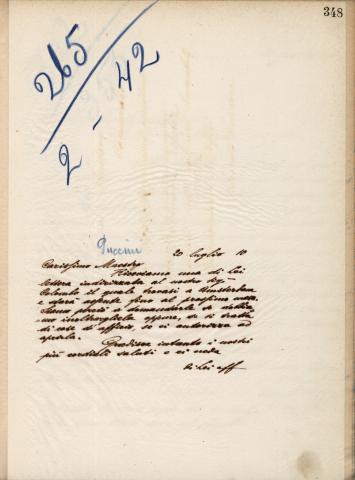 348
265
2 - 42
Puccini
20 luglio 10
Carissimo Maestro
Riceviamo una di lei
lettera indirizzata al nostro Sig.
Colombo il quale trovasi a Amsterdam
e sarà assente fino al prossimo mese.
siamo perciò a domandarle se dobbia-
mo inoltrargliela oppure, se si tratta
di cose di affari, se ci autorizza ad
aprirla.
Gradisca intanto i nostri
più cordiali saluti e ci creda
di Lei aff